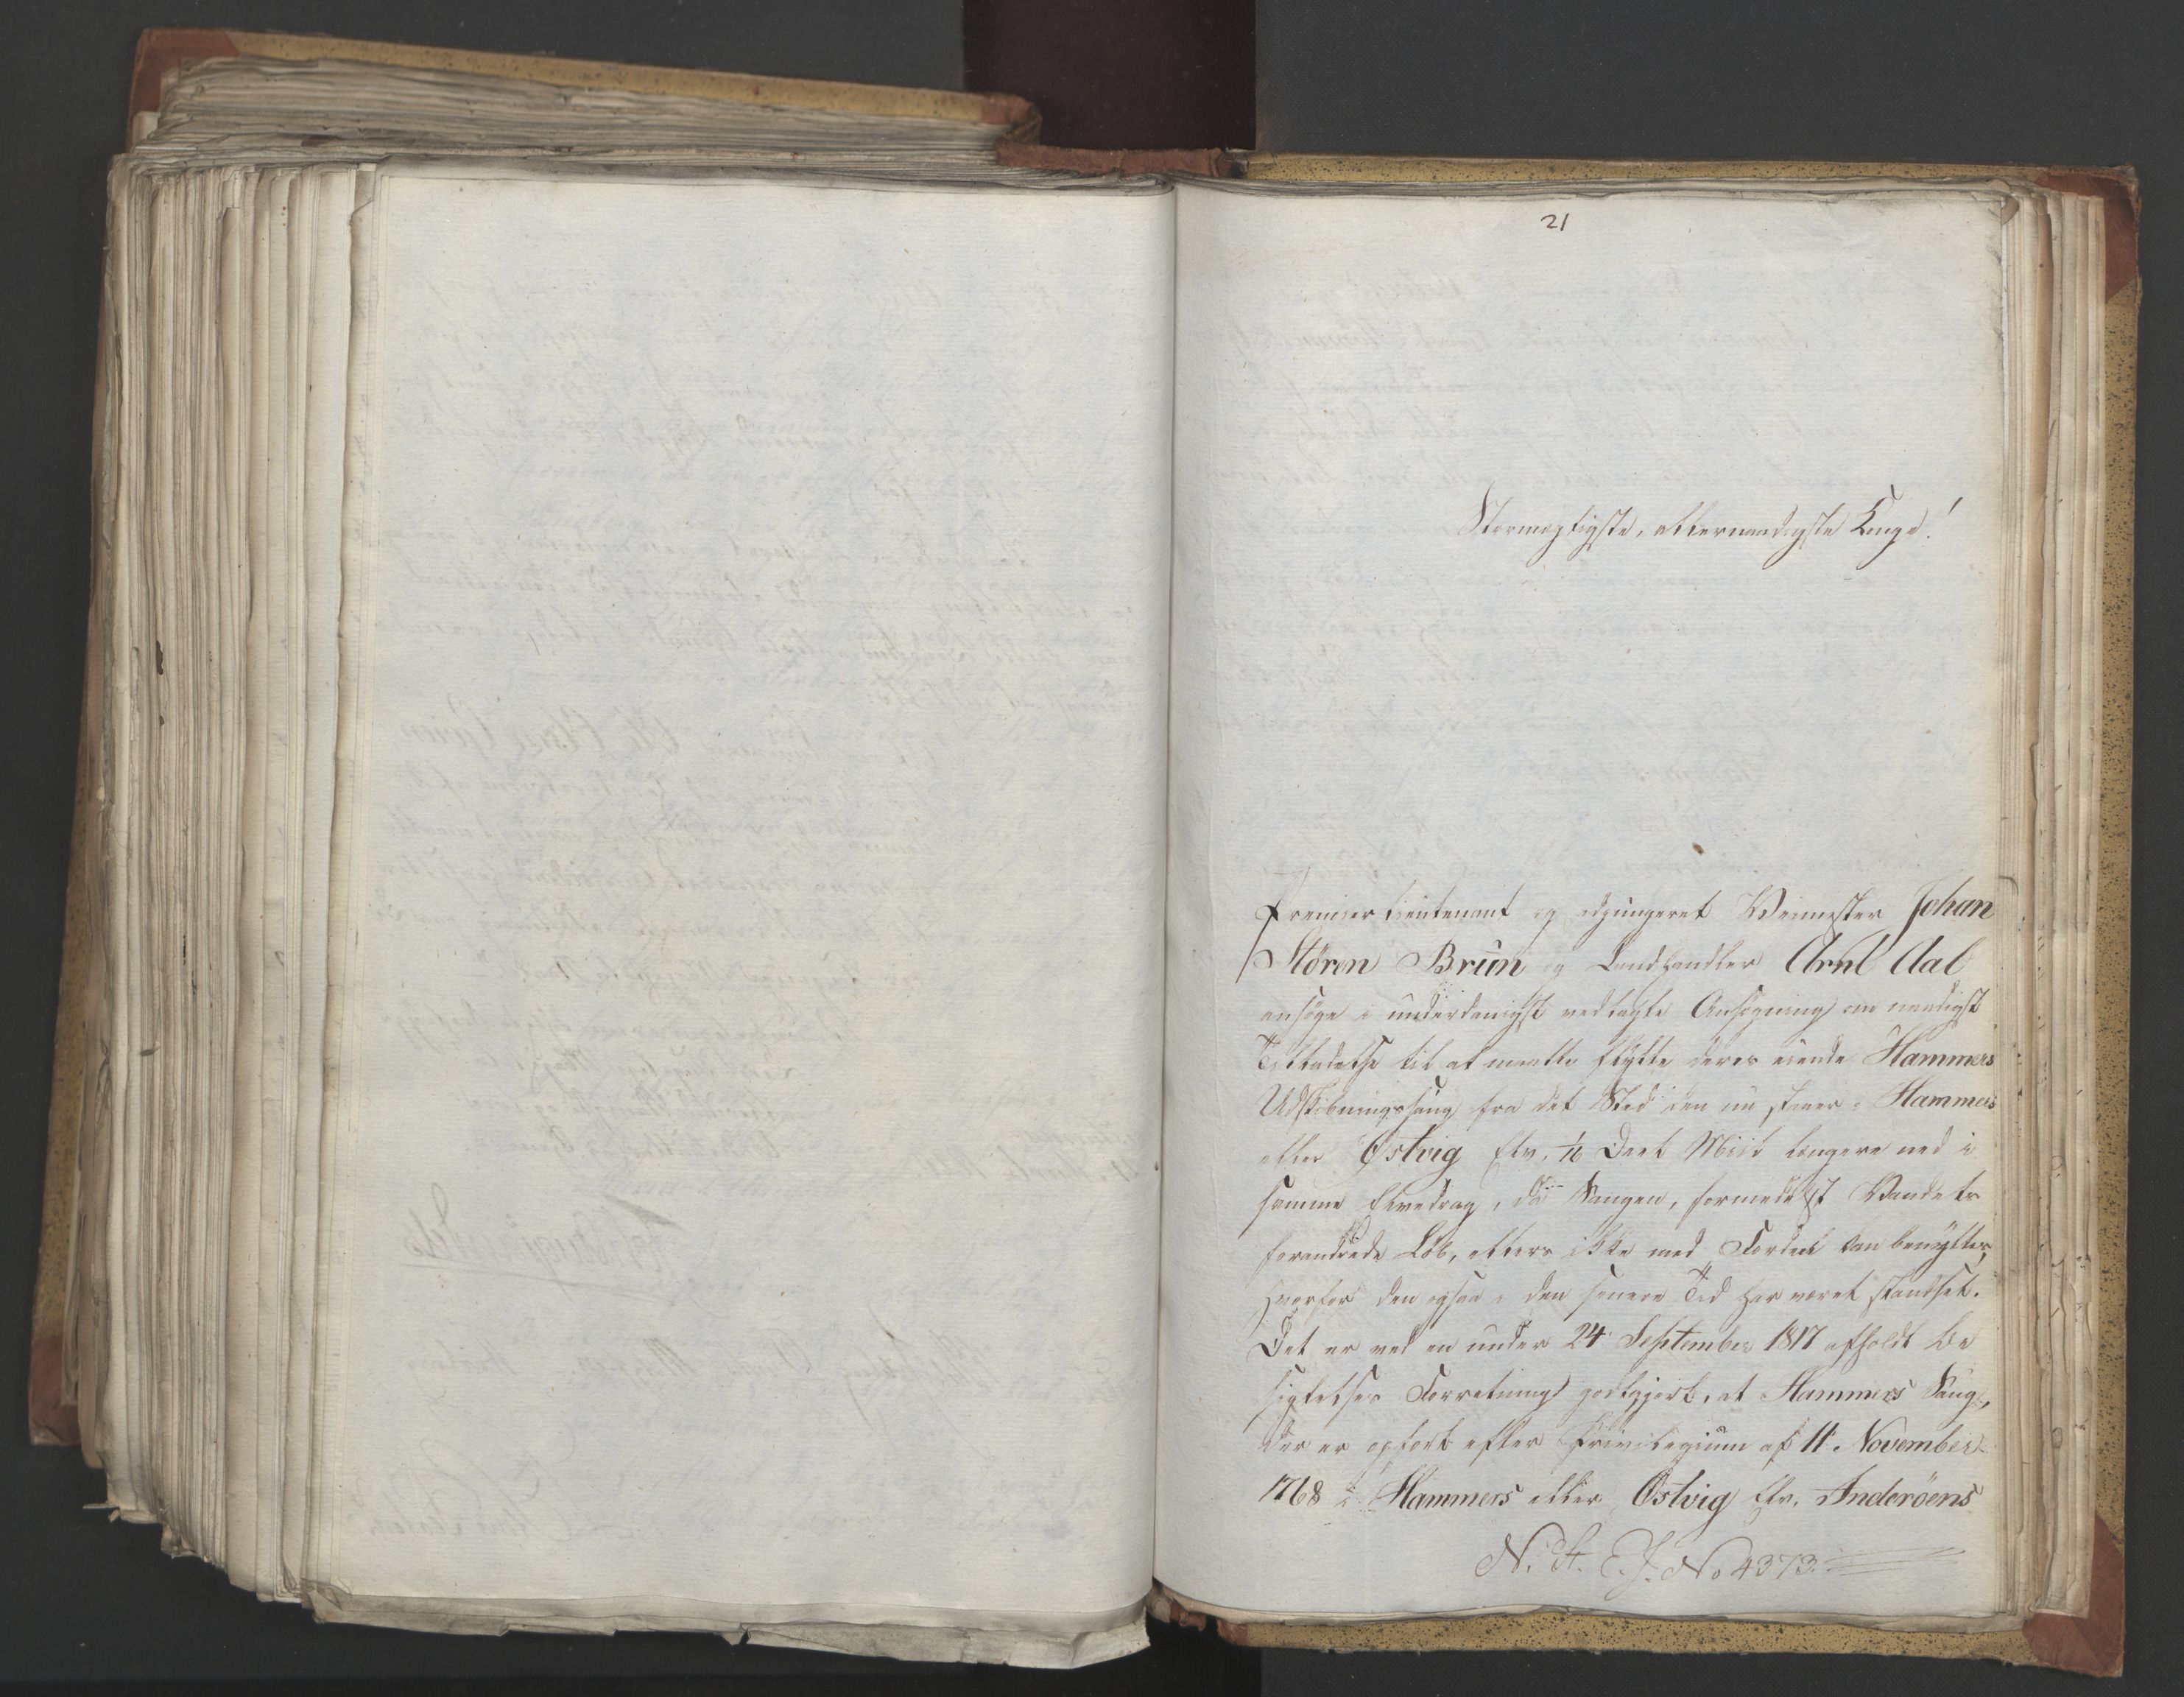 21
Stormægtigste, allernaadigste Konge!
Premier Lieutenant og adjungeret Veimester Johan
Stören Brun og Landhandler Arnt Aal
ansöge i underdanigst vedlagte Ansögning om naadigst
Tilladelse til at maatte flytte deres eiende Hammers
Udskibningssaug fra det Sted den nu staaer i Hammers
eller Östvig Elv, 1/16 Deel Miil længere ned i
samme Elvedrag, da Saugen, formedelst Vandets
forandrede Löb, ellers ikke med Fordeel kan benyttes,
hvorfor den ogsaa i den senere Tid har været standset.
Det er ved en under 24 September 1817 afholdt Be
sigtelses Forretning godtgjort, at Hammers Saug,
der er opfört efter Privilegium af 11 November
1768 i Hammers eller Östvig Elv, Inderöens
N. St. E. J. No 4373.